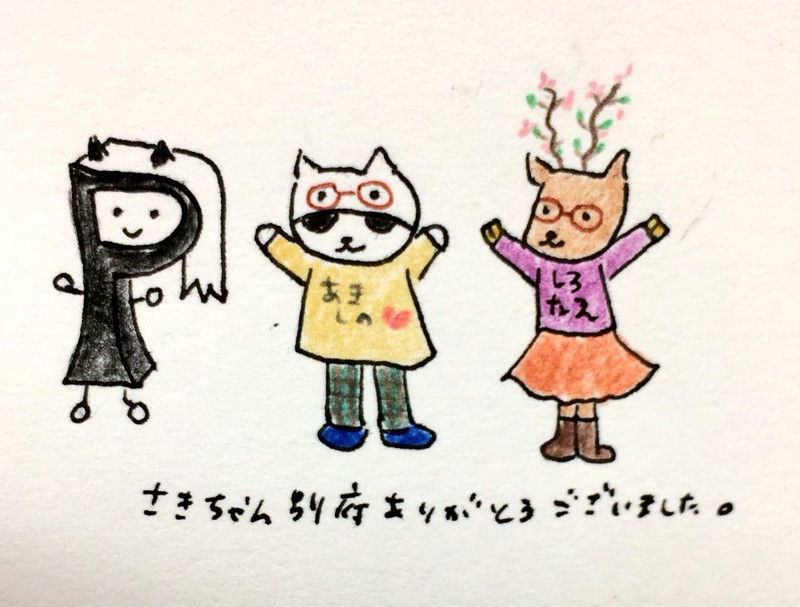 あき
しの
しろ
たえ
さきちゃん 別府ありがとうございました。